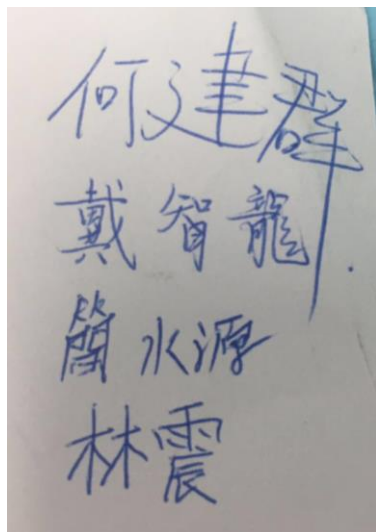 何建群
戴智龍
簡水源
林震